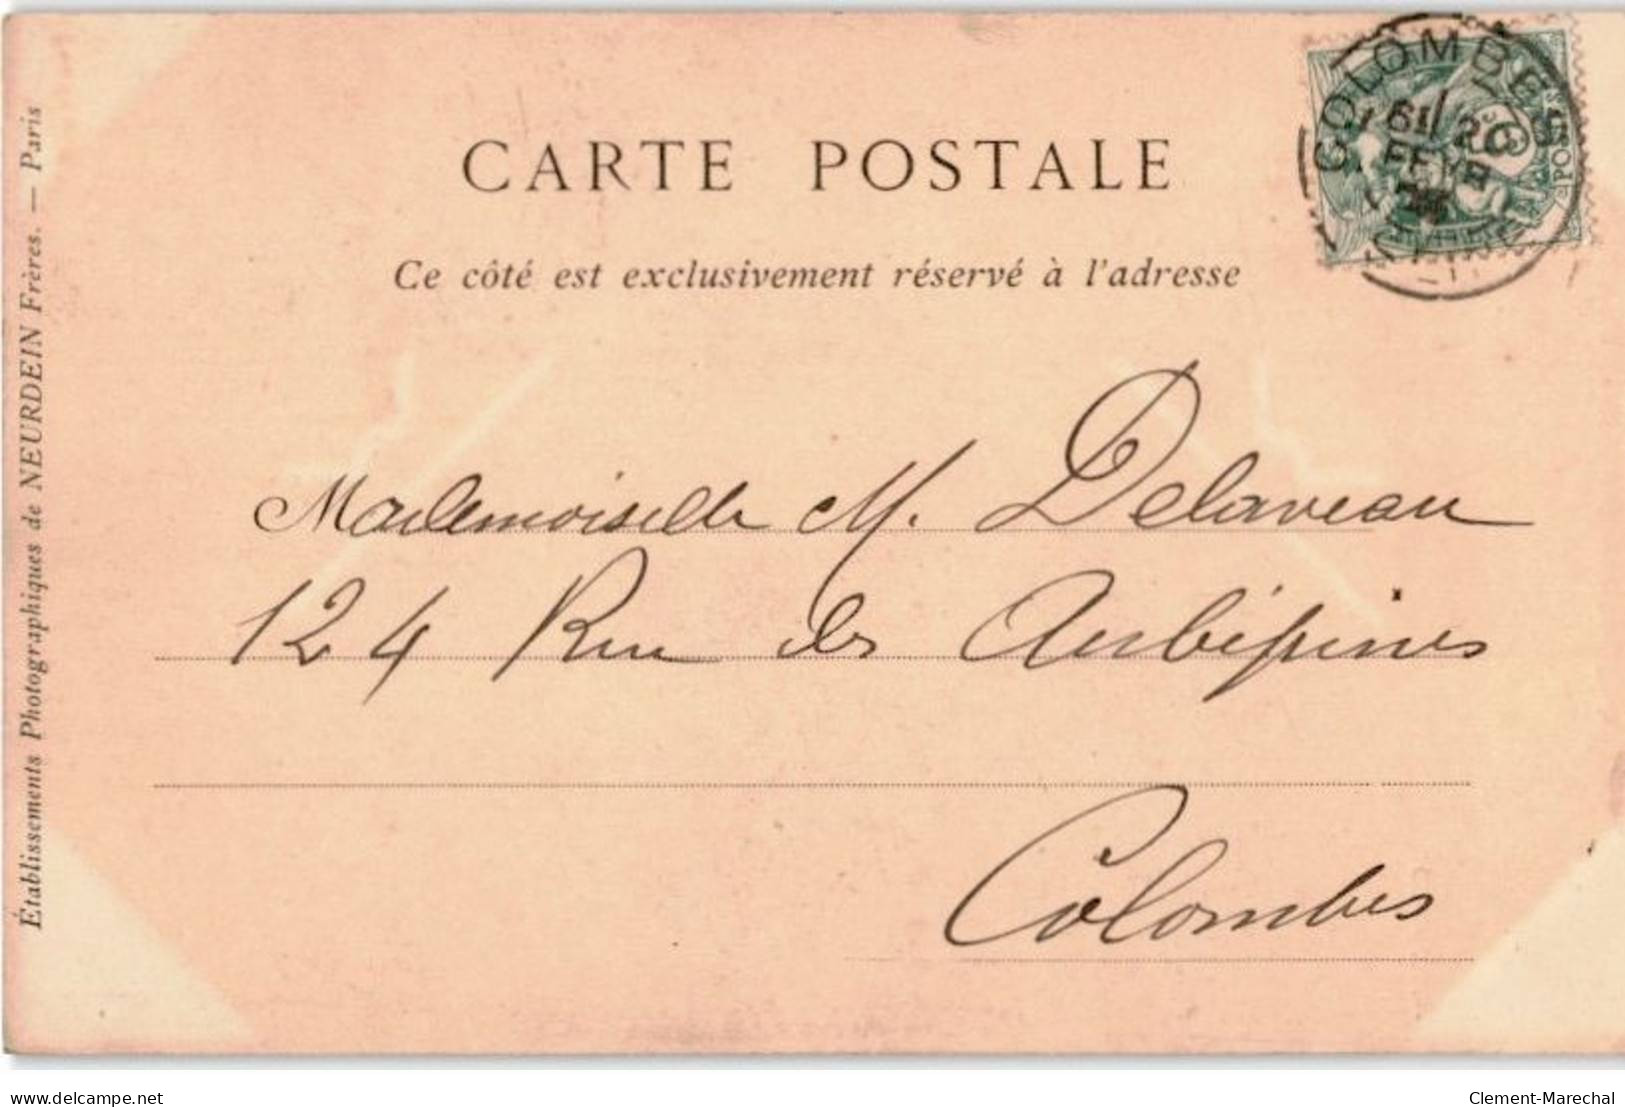 CARTE POSTALE
Ce côté est exclusivement réservé à l'adresse
COLOMBES
Mademoiselle M. Delaveau
124 Rue des Aubépines
Colombes
Établissements Photographiques de NEURDEIN Frères. — Paris
www.delcampe.net
Clement-Marechal